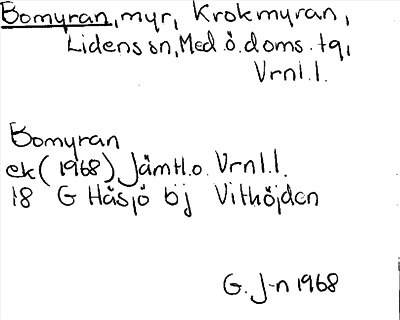 Bomyran, myr, Krokmyran,
Lidens sn, Med.ö.doms.tq,
Vrnl.l.
Bomyran
ek (1968) Jämtl.o. Vrnl.l.
18 G Håsjö bj Vithöjden
G. J-n 1968